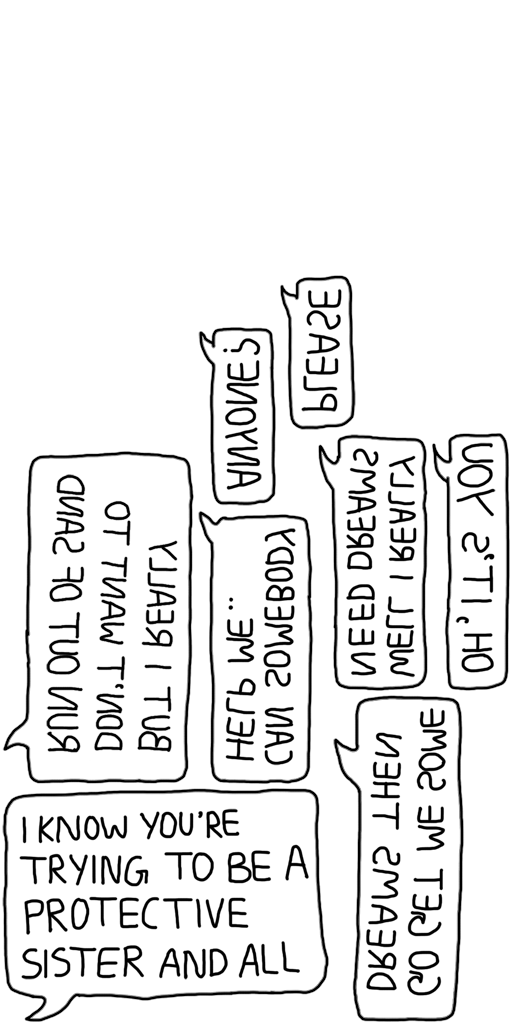 PLEASE
ANYONE?
OH, IT'S YOU
WELL I REALLY
NEED DREAMS
CAN SOMEBODY
HELP ME..
BUT I REALLY
DON'T WANT TO
RUN OUT OF SAND
GO GET ME SOME
DREAMS THEN
I KNOW YOU'RE
TRYING TO BE A
PROTECTIVE
SISTER AND ALL